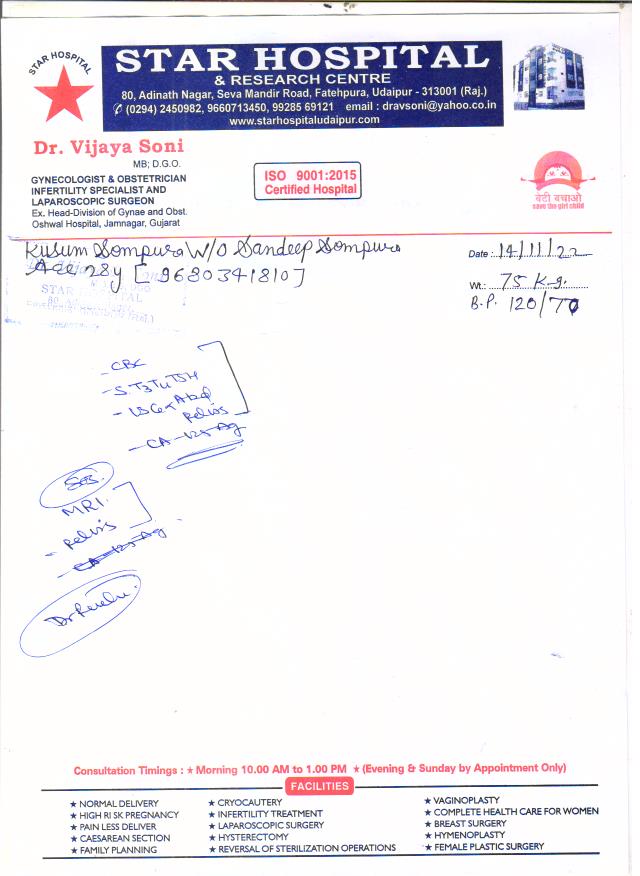 STAR HOSPITAL
STAR HOSPITAL
& RESEARCH CENTRE
80, Adinath Nagar, Seva Mandir Road, Fatehpura, Udaipur - 313001 (Raj.)
(0294) 2450982, 9660713450, 99285 69121 email : dravsoni@yahoo.co.in
www.starhospitaludaipur.com
Dr. Vijaya Soni
MB; D.G.O.
GYNECOLOGIST & OBSTETRICIAN
INFERTILITY SPECIALIST AND
LAPAROSCOPIC SURGEON
Ex. Head-Division of Gynae and Obst.
Oshwal Hospital, Jamnagar, Gujarat
ISO 9001:2015
Certified Hospital
बेटी बचाओ
save the girl child
Kusum Sompura W/O Sandeep Sompura
Age 28y [9680341810]
Date : 14/11/22
Wt.: 75 K.g.
B.P. 120/70
STAR HOSPITAL
- CBC
- S.T3T4TSH
- USG Abd
Pelvis
- CA-125 Ag
MRI
- Pelvis
- CA-125 Ag
Consultation Timings : ★ Morning 10.00 AM to 1.00 PM ★ (Evening & Sunday by Appointment Only)
FACILITIES
★ NORMAL DELIVERY
★ HIGH RI SK PREGNANCY
★ PAIN LESS DELIVER
★ CAESAREAN SECTION
★ FAMILY PLANNING
★ CRYOCAUTERY
★ INFERTILITY TREATMENT
★ LAPAROSCOPIC SURGERY
★ HYSTERECTOMY
★ REVERSAL OF STERILIZATION OPERATIONS
★ VAGINOPLASTY
★ COMPLETE HEALTH CARE FOR WOMEN
★ BREAST SURGERY
★ HYMENOPLASTY
★ FEMALE PLASTIC SURGERY